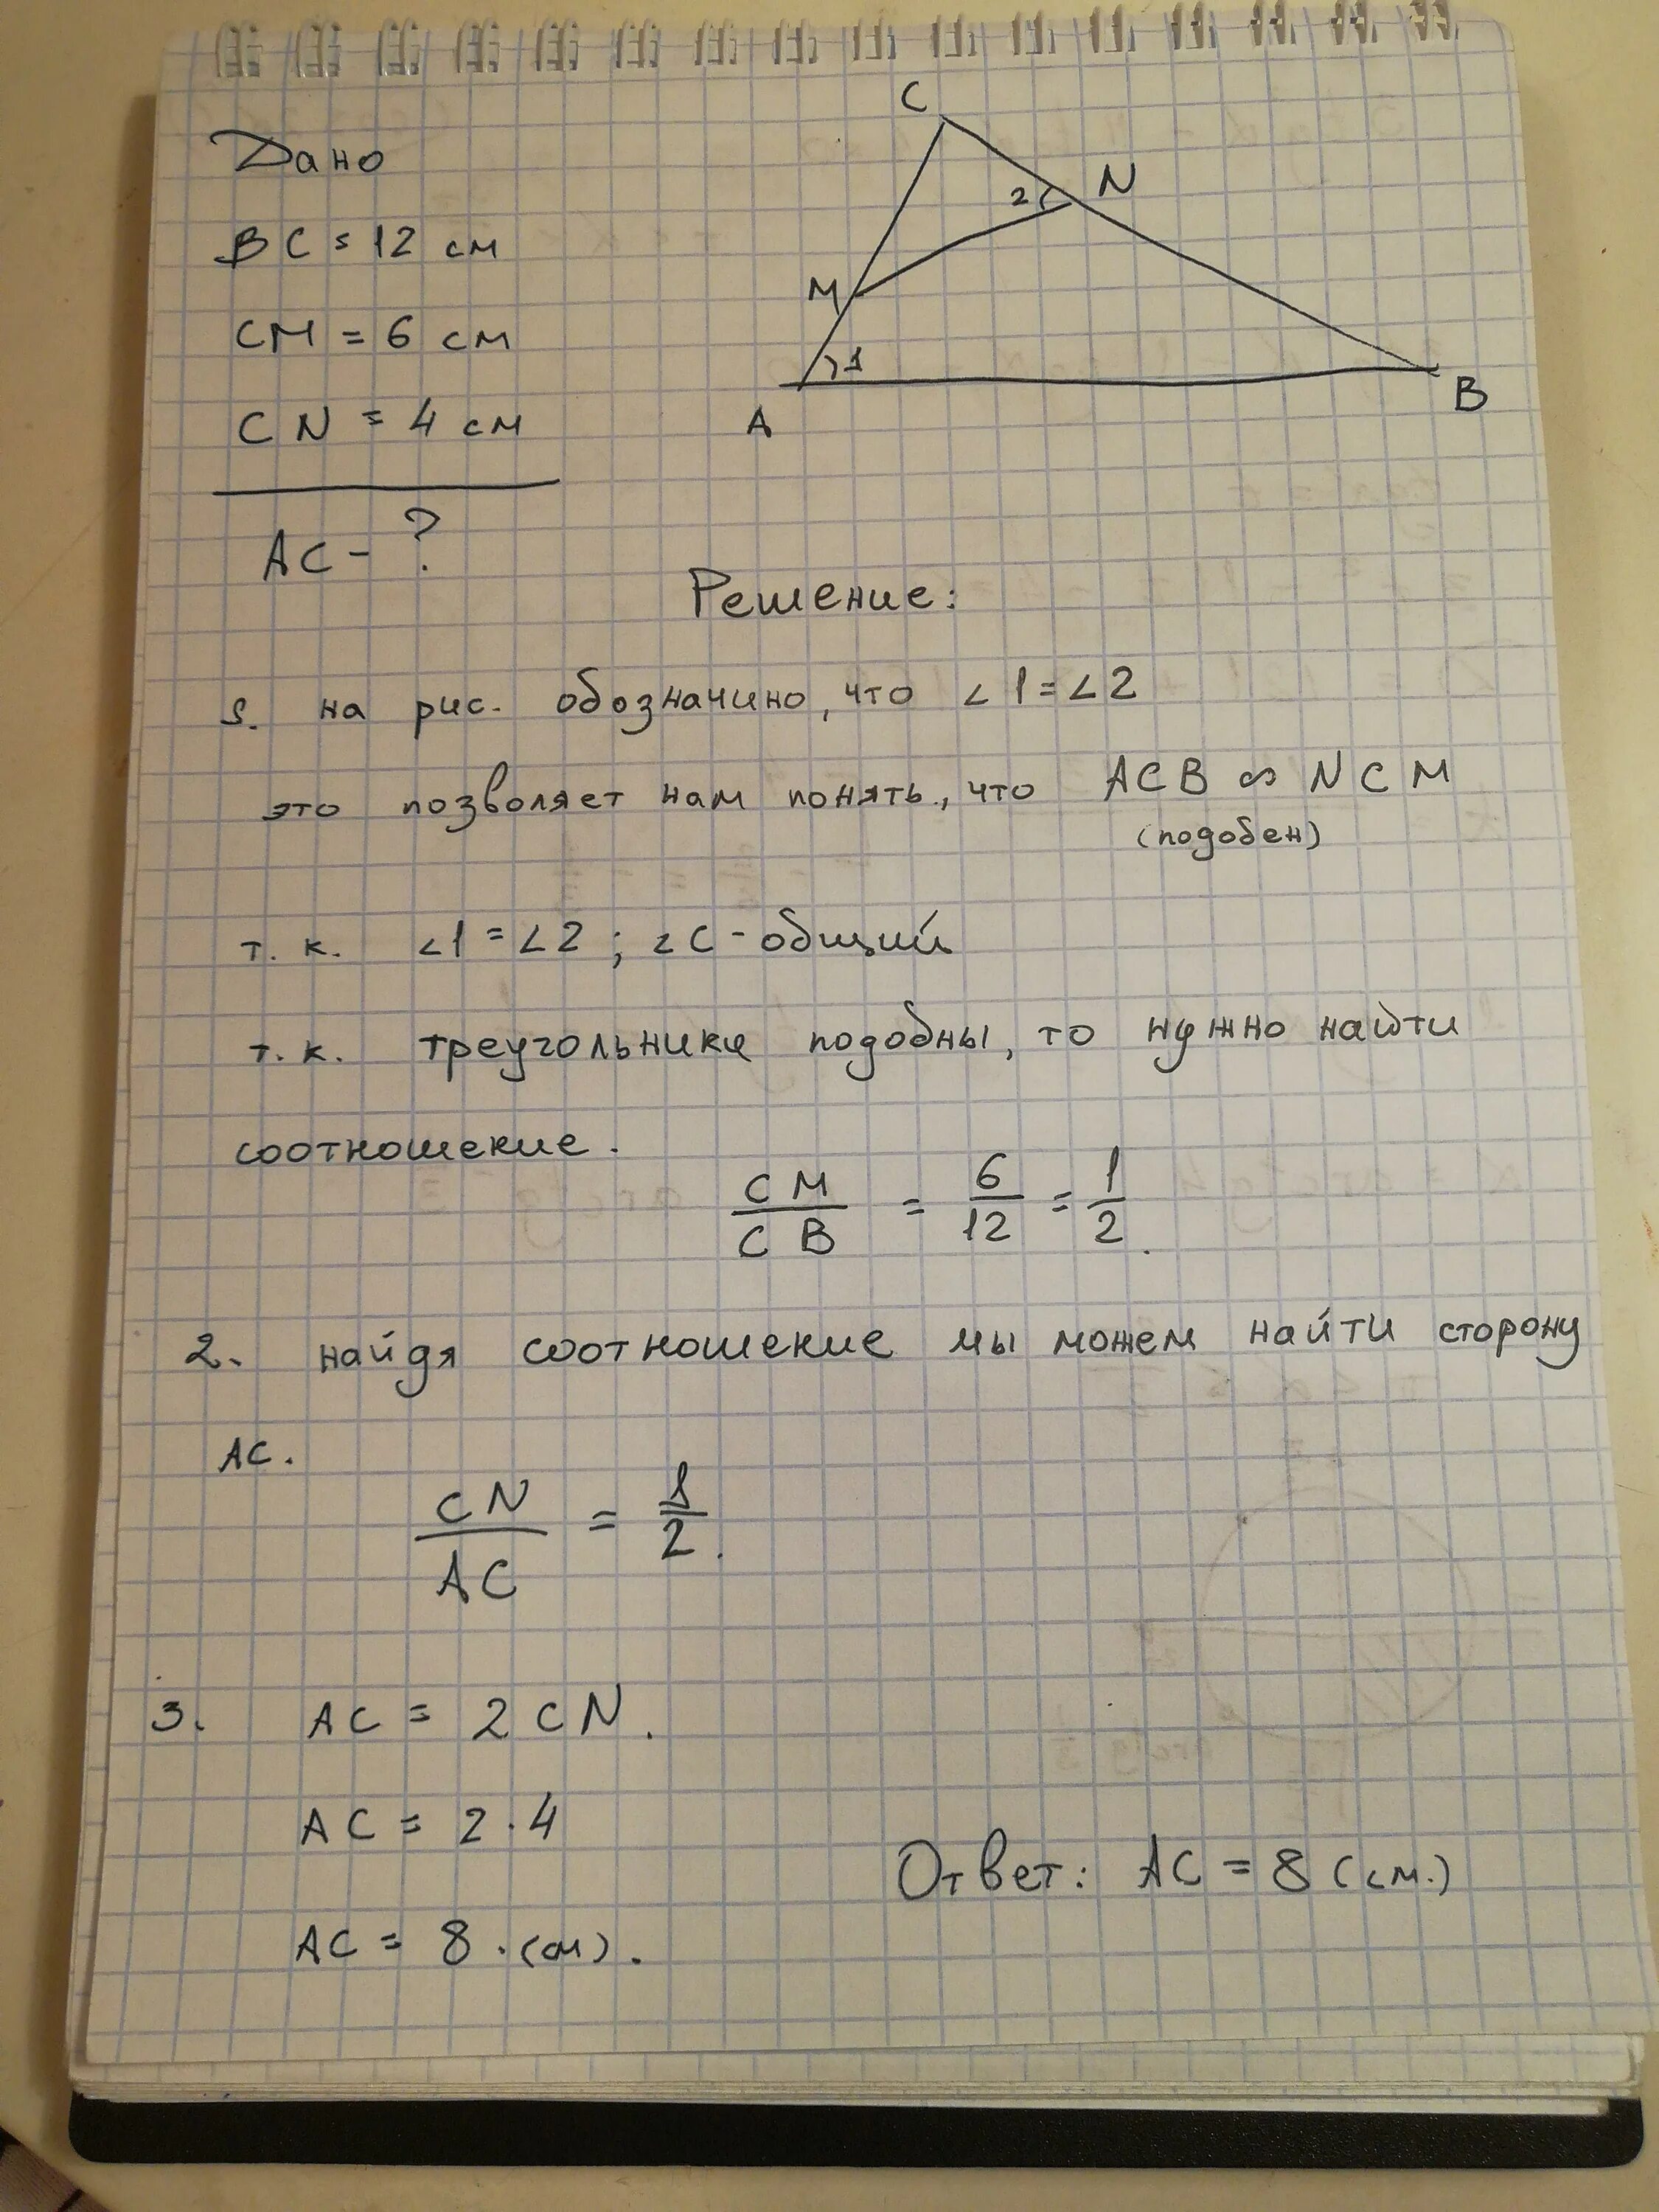 Дано
BC = 12 см
CM = 6 см
CN = 4 см
AC - ?
C
N
2
M
1
A
B
Решение:
1. на рис. обозначино, что ∠1 = ∠2
это позволяет нам понять, что ACB ∾ NCM
(подобен)
т. к. ∠1 = ∠2 ; ∠C - общий
т. к. треугольники подобны, то нужно найти
соотношение.
CM / CB = 6 / 12 = 1 / 2.
2. найдя соотношение мы можем найти сторону
AC.
CN / AC = 1 / 2.
3. AC = 2 CN.
AC = 2 · 4
AC = 8 · (см).
Ответ: AC = 8 (см.)